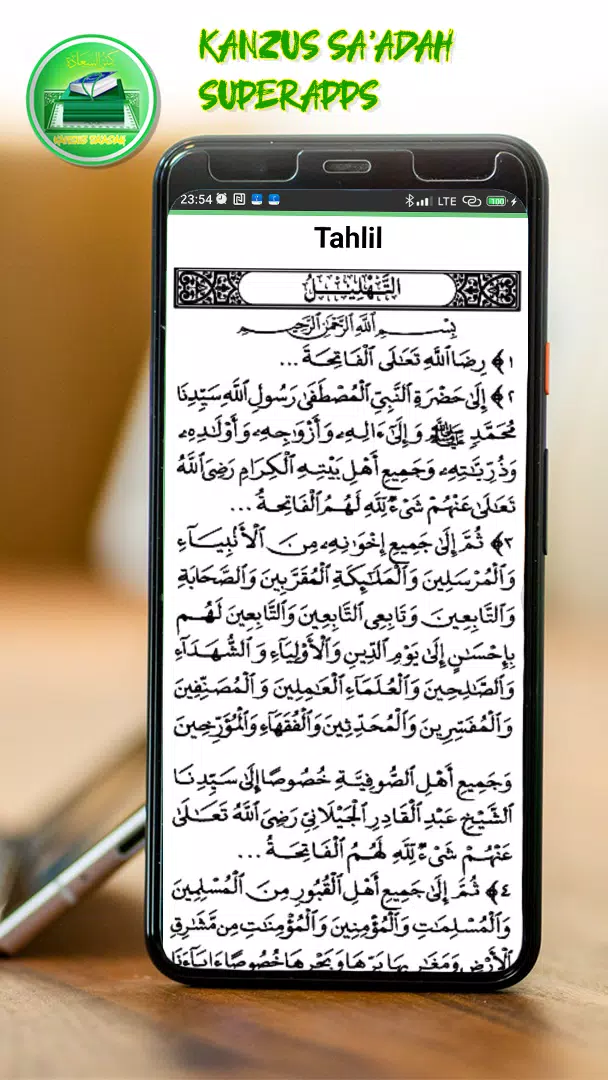 KANZUS SA'ADAH
SUPERAPPS
كنز السعادة
KANZUS SA'ADAH
23:54
LTE
100
Tahlil
التَّهْلِيْلُ
بِسْمِ اللهِ الرَّحْمٰنِ الرَّحِيْمِ
١﴾ رِضَا اللهِ تَعَالَى الْفَاتِحَةَ ...
٢﴾ إِلَى حَضْرَةِ النَّبِيِّ الْمُصْطَفَى رَسُولِ اللهِ سَيِّدِنَا
مُحَمَّدٍ ﷺ وَإِلَى ءَالِهِ، وَأَزْوَاجِهِ، وَأَوْلَادِهِ،
وَذُرِّيَّاتِهِ، وَجَمِيعِ أَهْلِ بَيْتِهِ الْكِرَامِ رَضِيَ اللهُ
تَعَالَى عَنْهُمْ شَيْءٌ لِلّٰهِ لَهُمُ الْفَاتِحَةُ ...
٣﴾ ثُمَّ إِلَى جَمِيعِ إِخْوَانِهِ، مِنَ الْأَنْبِيَاءِ
وَالْمُرْسَلِينَ وَالْمَلَائِكَةِ الْمُقَرَّبِينَ وَالصَّحَابَةِ
وَالتَّابِعِينَ وَتَابِعِي التَّابِعِينَ وَالتَّابِعِينَ لَهُمْ
بِإِحْسَانٍ إِلَى يَوْمِ الدِّينِ وَالْأَوْلِيَاءِ وَالشُّهَدَاءِ
وَالصَّالِحِينَ وَالْعُلَمَاءِ الْعَامِلِينَ وَالْمُصَنِّفِينَ
وَالْمُفَسِّرِينَ وَالْمُحَدِّثِينَ وَالْفُقَهَاءِ وَالْمُؤَرِّخِينَ
وَجَمِيعِ أَهْلِ الصُّوفِيَّةِ خُصُوصًا إِلَى سَيِّدِنَا
الشَّيْخِ عَبْدِ الْقَادِرِ الْجَيْلَانِي رَضِيَ اللهُ تَعَالَى
عَنْهُمْ شَيْءٌ لِلّٰهِ لَهُمُ الْفَاتِحَةُ ...
٤﴾ ثُمَّ إِلَى جَمِيعِ أَهْلِ الْقُبُورِ مِنَ الْمُسْلِمِينَ
وَالْمُسْلِمَاتِ وَالْمُؤْمِنِينَ وَالْمُؤْمِنَاتِ مِنْ مَشَارِقِ
الْأَرْضِ وَمَغَارِبِهَا بَرِّهَا وَبَحْرِهَا خُصُوصًا ءَابَاءَنَا